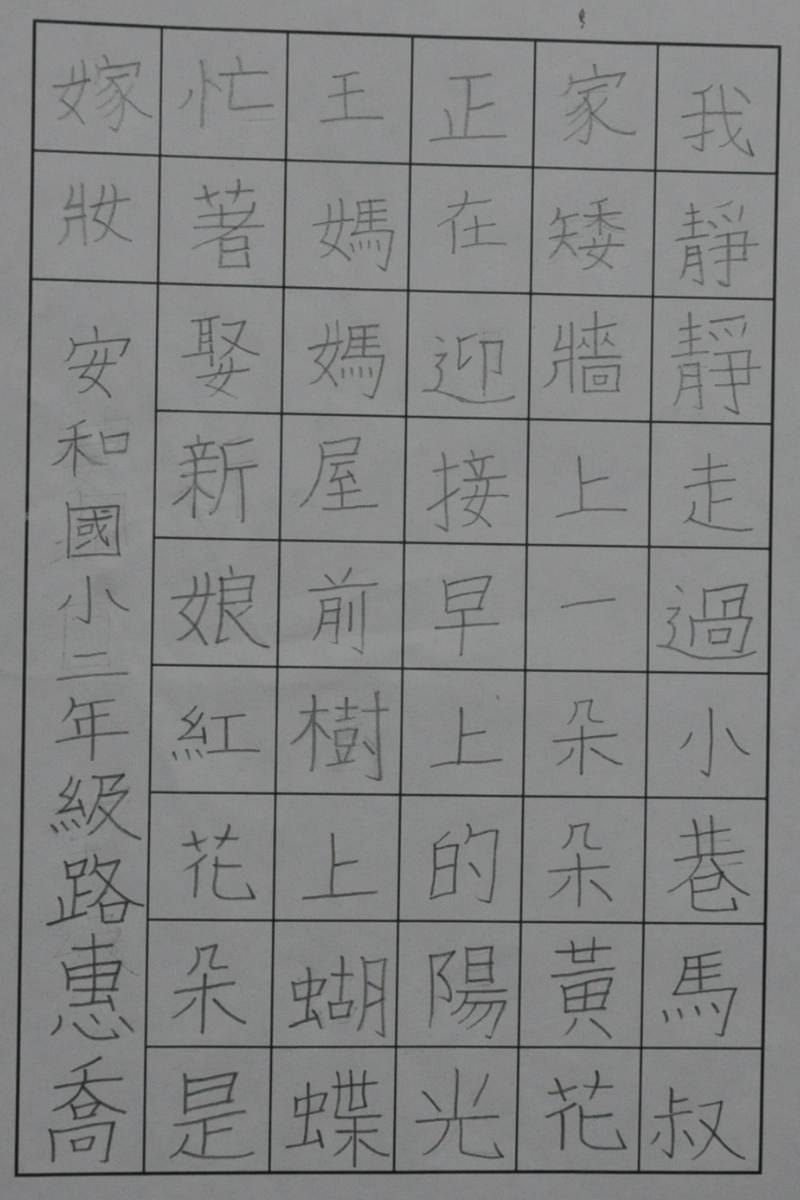 我靜靜走過小巷馬叔
家矮牆上一朵朵黃花
正在迎接早上的陽光
王媽媽屋前樹上蝴蝶
忙著娶新娘紅花朵是
嫁妝
安和國小二年級路惠喬